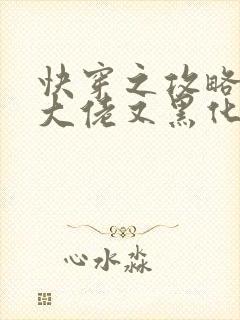 快穿之攻略
大佬又黑化
心水淼